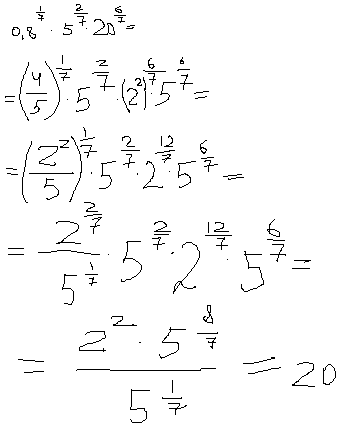 0,8^{1/7} · 5^{2/7} · 20^{6/7} =
= (4/5)^{1/7} · 5^{2/7} · (2^2)^{6/7} · 5^{6/7} =
= (2^2/5)^{1/7} · 5^{2/7} · 2^{12/7} · 5^{6/7} =
= 2^{2/7}/5^{1/7} · 5^{2/7} · 2^{12/7} · 5^{6/7} =
= (2^2 · 5^{8/7})/5^{1/7} = 20